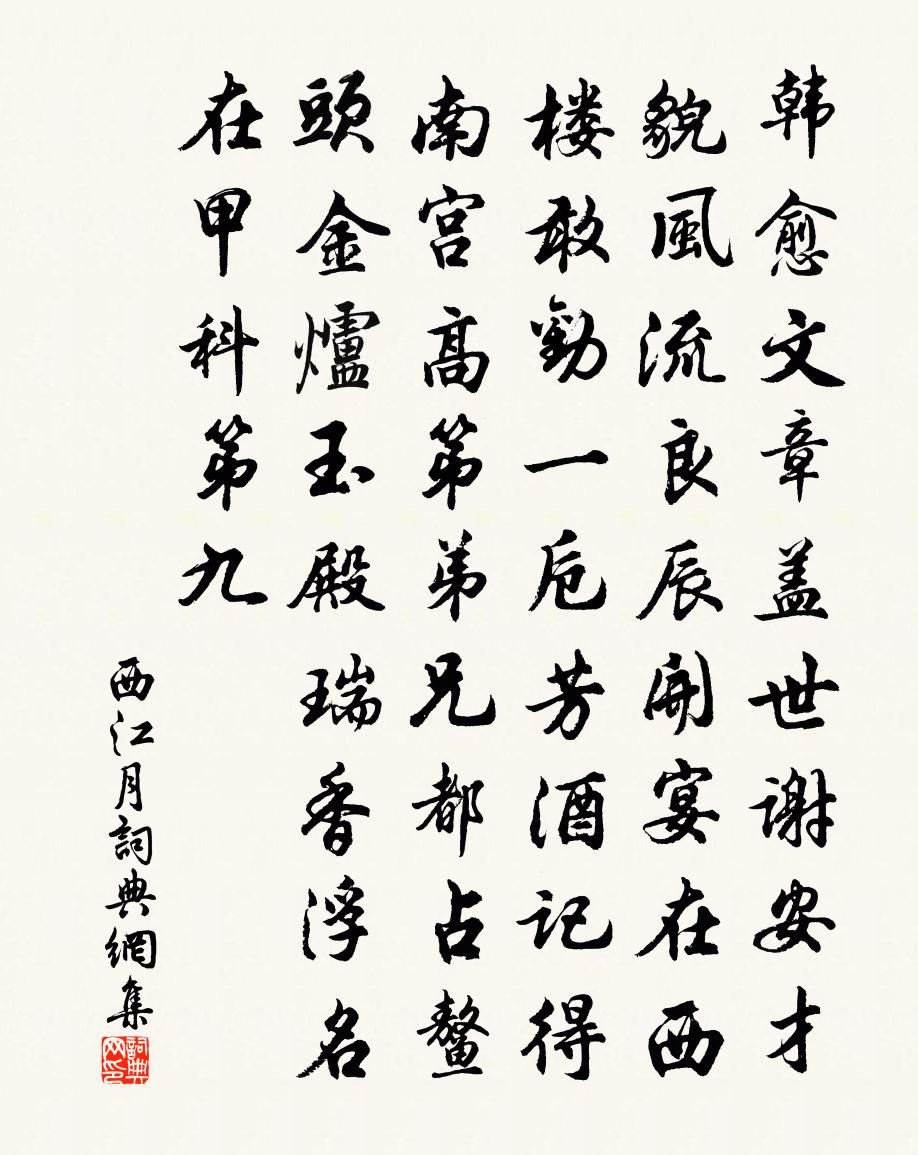 韩愈文章盖世谢安才
貌風流良辰開宴在西
楼敢勸一卮芳酒记得
南宫高第弟兄都占鳌
頭金爐玉殿瑞香浮名
在甲科第九
西江月詞典網集
詞典网印